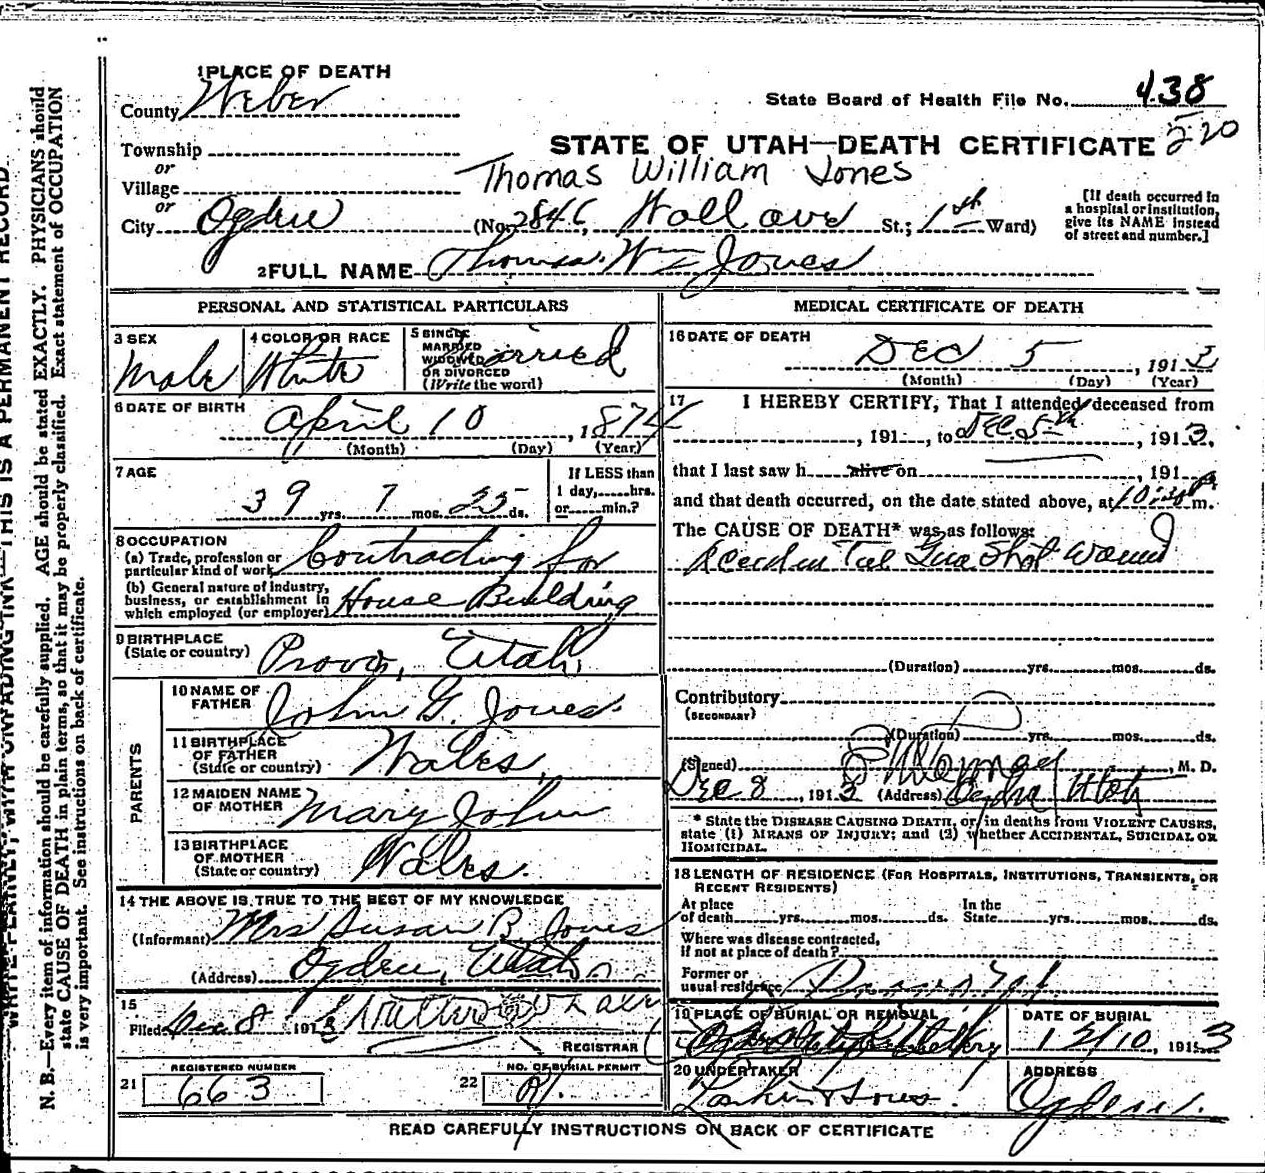 1 PLACE OF DEATH
County Weber
State Board of Health File No. 438
220
STATE OF UTAH—DEATH CERTIFICATE
Township
or
Village
or
Thomas William Jones
City Ogden (No. 2846, Wall ave St.; 1st Ward)
[If death occurred in
a hospital or institution,
give its NAME instead
of street and number.]
2 FULL NAME Thomas Wm Jones
PERSONAL AND STATISTICAL PARTICULARS
3 SEX
Male
4 COLOR OR RACE
White
5 SINGLE
MARRIED
WIDOWED
OR DIVORCED
(Write the word)
Married
6 DATE OF BIRTH
April 10, 1874
(Month) (Day) (Year)
7 AGE
39 yrs. 7 mos. 25 ds.
If LESS than
1 day, hrs.
or min.?
8 OCCUPATION
(a) Trade, profession or
particular kind of work Contracting for
(b) General nature of industry,
business, or establishment in
which employed (or employer) House Building
9 BIRTHPLACE
(State or country) Provo, Utah,
PARENTS
10 NAME OF
FATHER John G. Jones.
11 BIRTHPLACE
OF FATHER
(State or country) Wales,
12 MAIDEN NAME
OF MOTHER Mary John
13 BIRTHPLACE
OF MOTHER
(State or country) Wales.
14 THE ABOVE IS TRUE TO THE BEST OF MY KNOWLEDGE
(Informant) Mrs Susan B. Jones
(Address) Ogden, Utah
15
Filed Dec 8 1913 Walter Whalen
REGISTRAR
21 REGISTERED NUMBER
663
22 NO. OF BURIAL PERMIT
MEDICAL CERTIFICATE OF DEATH
16 DATE OF DEATH
Dec 5, 1913
(Month) (Day) (Year)
17 I HEREBY CERTIFY, That I attended deceased from
, 191 , to Dec 5th, 1913,
that I last saw h alive on , 191
and that death occurred, on the date stated above, at 10:30 P m.
The CAUSE OF DEATH* was as follows:
Accidental Gun Shot Wound
(Duration) yrs. mos. ds.
Contributory
(SECONDARY)
(Duration) yrs. mos. ds.
(Signed) , M. D.
Dec 8, 1913 (Address) Ogden Utah
* State the DISEASE CAUSING DEATH, or, in deaths from VIOLENT CAUSES,
state (1) MEANS OF INJURY; and (2) whether ACCIDENTAL, SUICIDAL OR
HOMICIDAL.
18 LENGTH OF RESIDENCE (FOR HOSPITALS, INSTITUTIONS, TRANSIENTS, OR
RECENT RESIDENTS)
At place
of death yrs. mos. ds.
In the
State yrs. mos. ds.
Where was disease contracted,
if not at place of death?
Former or
usual residence
19 PLACE OF BURIAL OR REMOVAL
Ogden City Cemetery
DATE OF BURIAL
12/10, 1913
20 UNDERTAKER
Larkin & Sons.
ADDRESS
Ogden.
READ CAREFULLY INSTRUCTIONS ON BACK OF CERTIFICATE
WRITE PLAINLY, WITH UNFADING INK—THIS IS A PERMANENT RECORD.
N. B.—Every item of information should be carefully supplied. AGE should be stated EXACTLY. PHYSICIANS should
state CAUSE OF DEATH in plain terms, so that it may be properly classified. Exact statement of OCCUPATION
is very important. See instructions on back of certificate.